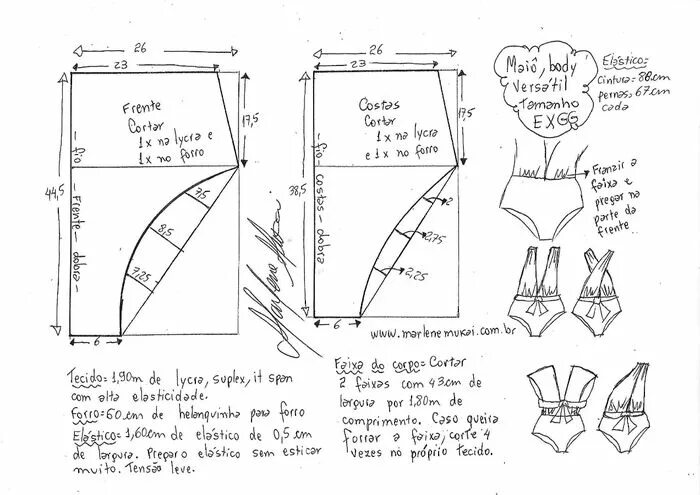 26
23
44,5
17,5
Frente
Cortar
1x na lycra e
1x no forro
fio - Frente - dobra
7,5
8,5
7,25
6
26
23
38,5
17,5
Costas
Cortar
1x na lycra
e 1x no forro
fio - costas - dobra
2
2,75
2,25
6
Marlene Mukai
www.marlenemukai.com.br
Maiô, body
versátil
Tamanho
EXGG
Elástico=
cintura=88cm
pernas=67cm
cada
Franzir a
faixa e
pregar na
parte da
frente
Tecido=1,90m de lycra, suplex, it span
com alta elasticidade.
Forro=60cm de helanquinha para forro
Elástico=1,60cm de elástico de 0,5cm
de largura. Prepar o elástico sem esticar
muito. Tensão leve.
Faixa do corpo= Cortar
2 faixas com 43cm de
largura por 1,80m de
comprimento. Caso queira
forrar a faixa, corte 4
vezes no próprio tecido.